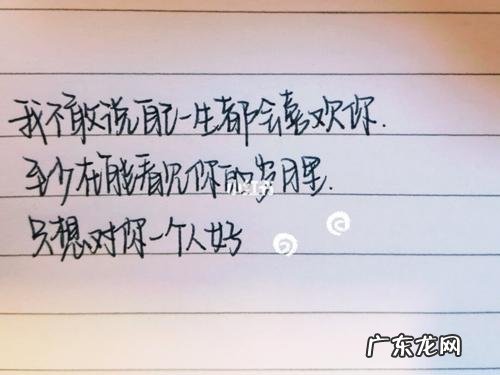 我不敢说自己一生都会喜欢你.
至少在能看见你的岁月里.
只想对你一个人好
小红书
广东龙网